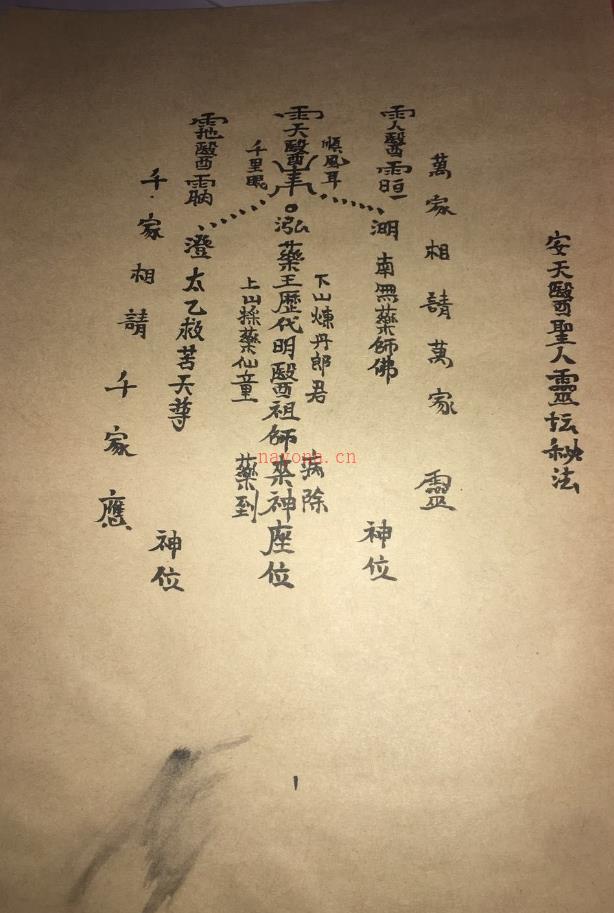 安天醫聖人靈坛秘法
萬家相請萬家靈
人醫
南無藥師佛
神位
順風耳
下山煉丹郎君
病除
天醫
泓藥王歷代明醫祖師來神座位
千里眼
上山採藥仙童
藥到
地醫
澄太乙救苦天尊
神位
千家相請千家應
1
nayona.cn